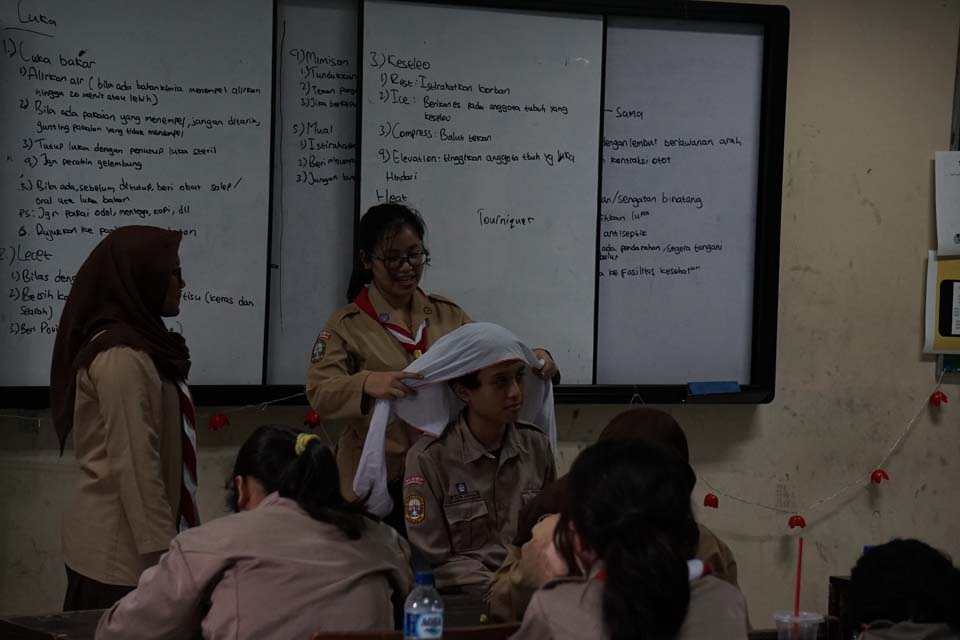 Luka
1.) Luka bakar
1) Alirkan air (bila ada bahan kimia menempel alirkan
hingga 20 menit atau lebih)
2) Bila ada pakaian yang menempel, jangan ditarik,
gunting pakaian yang tidak menempel
3) Tutup luka dengan penutup luka steril
4) Jgn pecahin gelembung
5.) Bila ada, sebelum ditutup, beri obat salep/
oral utk luka bakar
PS: Jgn pakai odol, mentega, kopi, dll
6. Rujukkan ke
2.) Lecet
1) Bilas
2) Bersih
tisu (keras dan
searah)
3) Beri
4) Mimisan
1) Tundukkan
2) Tekan
3) Jika
5) Mual
1) Istirahat
2) Beri
3) Jangan
3.) Keseleo
1) Rest: Istirahatkan korban
2) Ice: Berikan es pada anggota tubuh yang
keseleo
3) Compress: Balut tekan
4) Elevation: tinggikan anggota tbuh yg luka
Hindari
Heat
Tourniquet
- Sama
dengan lembut berlawanan arah
kontraksi otot
an/sengatan binatang
luka
antiseptik
ada pendarahan, segera tangani
balut
ke fasilitas kesehatan
AQUA